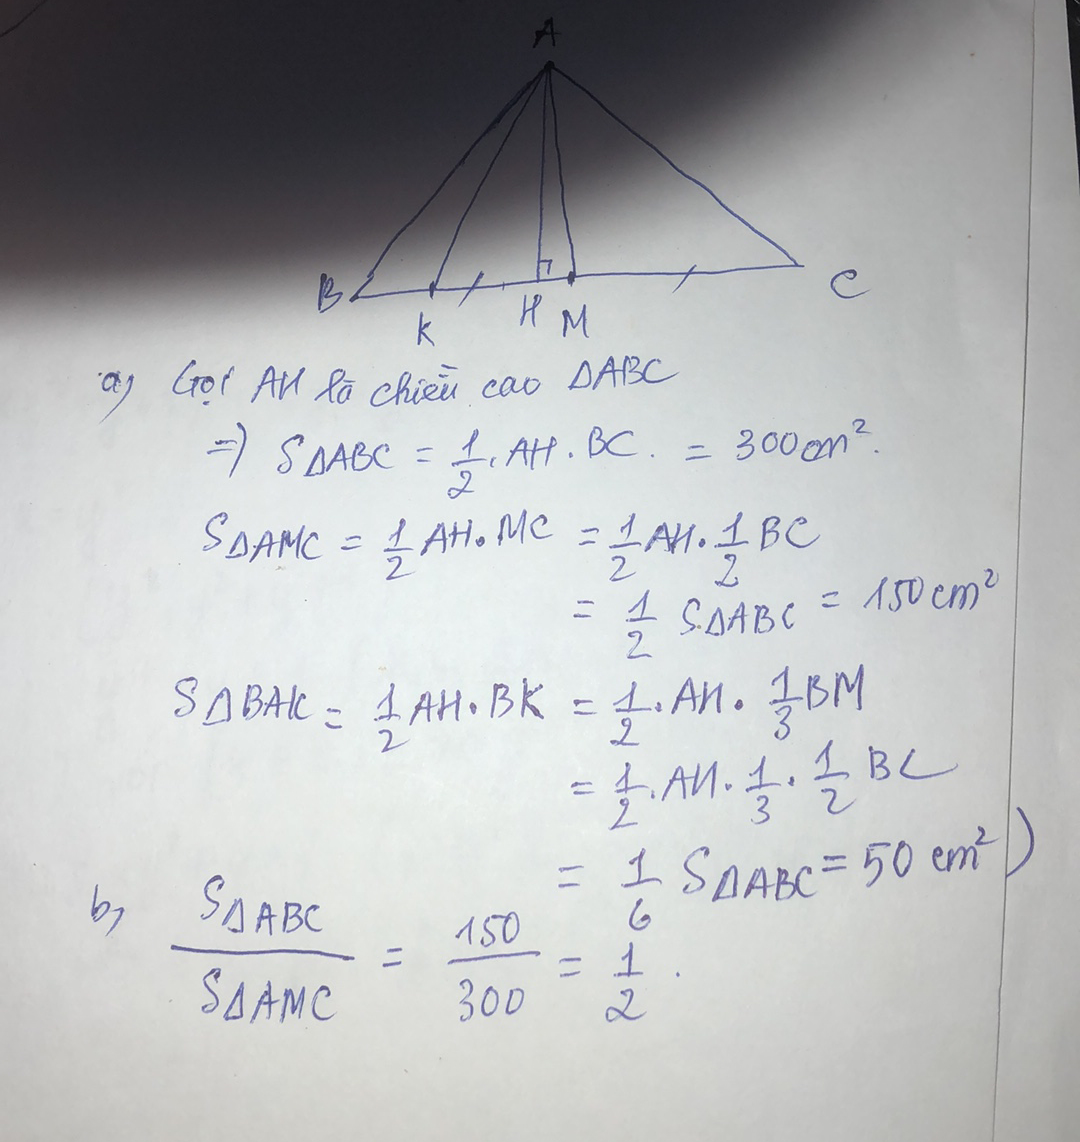 A
B K H M C
a, Gọi AH là chiều cao ΔABC
=) SΔABC = 1/2 . AH . BC . = 300cm².
SΔAMC = 1/2 AH . MC = 1/2 AH . 1/2 BC
= 1/2 SΔABC = 150 cm²
SΔBAK = 1/2 AH . BK = 1/2 . AH . 1/3 BM
= 1/2 . AH . 1/3 . 1/2 BC
= 1/6 SΔABC = 50 cm² )
b, SΔABC / SΔAMC = 150/300 = 1/2 .